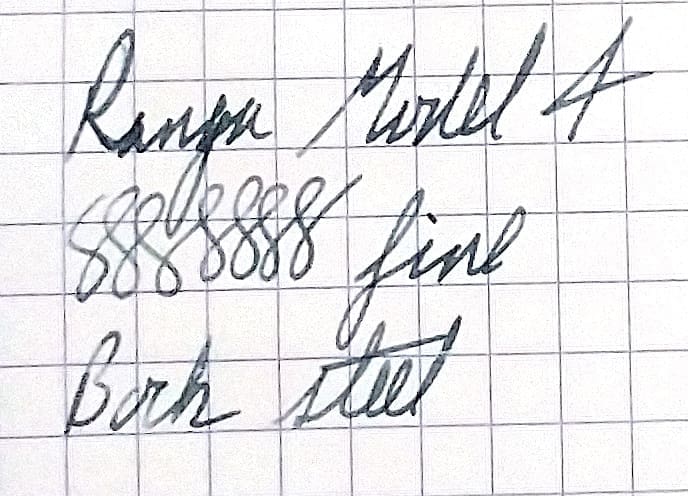 Ranga Model 4
8888888 fine
Bock steel